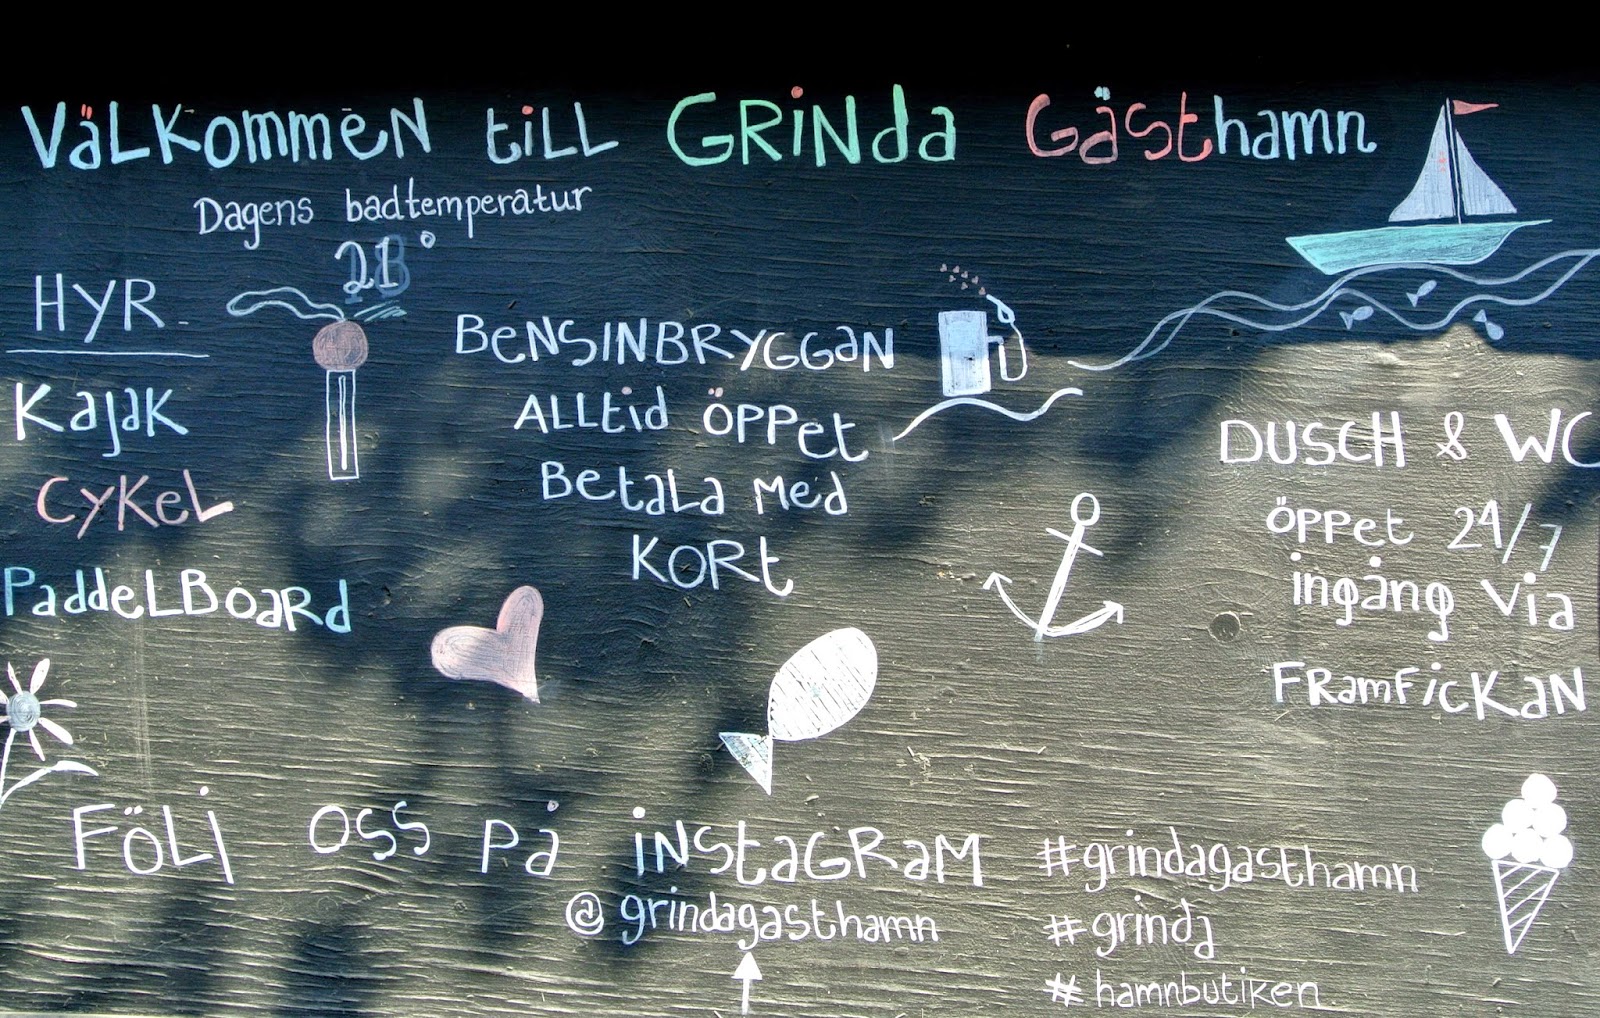 Välkommen till Grinda Gästhamn
Dagens badtemperatur
21°
HYR
Kajak
Cykel
Paddelboard
Bensinbryggan
Alltid öppet
Betala med
kort
DUSCH & WC
öppet 24/7
ingång via
framfickan
Följ oss på instagram
@grindagasthamn
#grindagasthamn
#grinda
#hamnbutiken